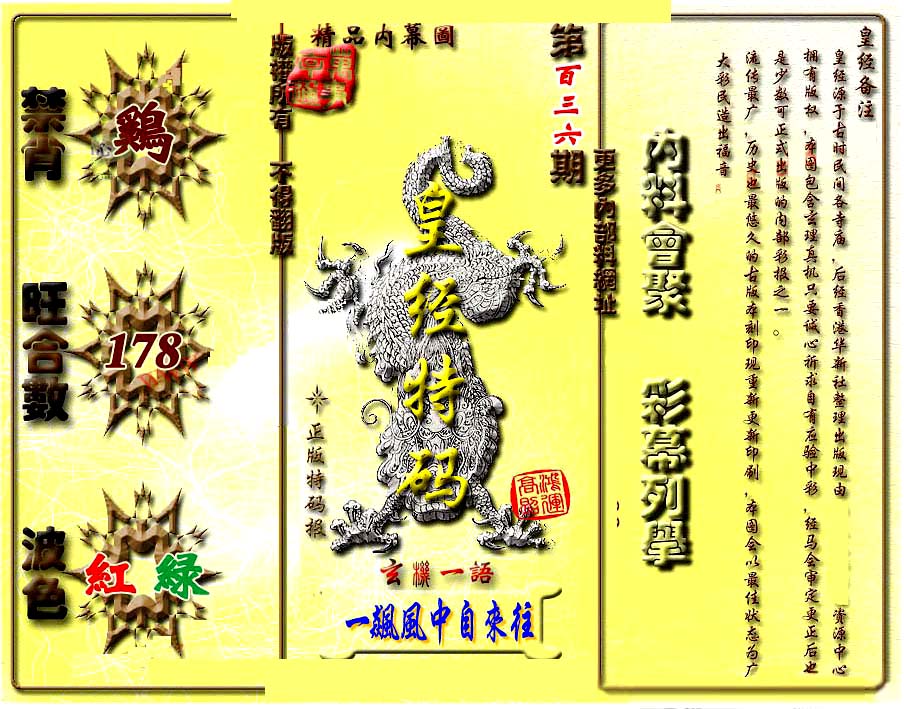 皇经备注
皇经源于古时民间各寺庙，后经香港华新社整理出版现由 资源中心
拥有版权，本图包含玄理真机只要诚心祈求自有应验中彩，经马会审定更正后也
是少数可正式出版的内部彩报之一。
流传最广，历史也最悠久的古版本刻印现重新更新印刷，本图会以最佳状态为广
大彩民造出福音
內料會聚
彩幕列舉
更多內部料網址
：
精品内幕圖
第百三六期
皇经特码
正版特码报
鴻運
高照
玄機一語
一飆風中自來往
版權所有 不得翻版
禁肖
鷄
旺合數
178
波色
紅 綠